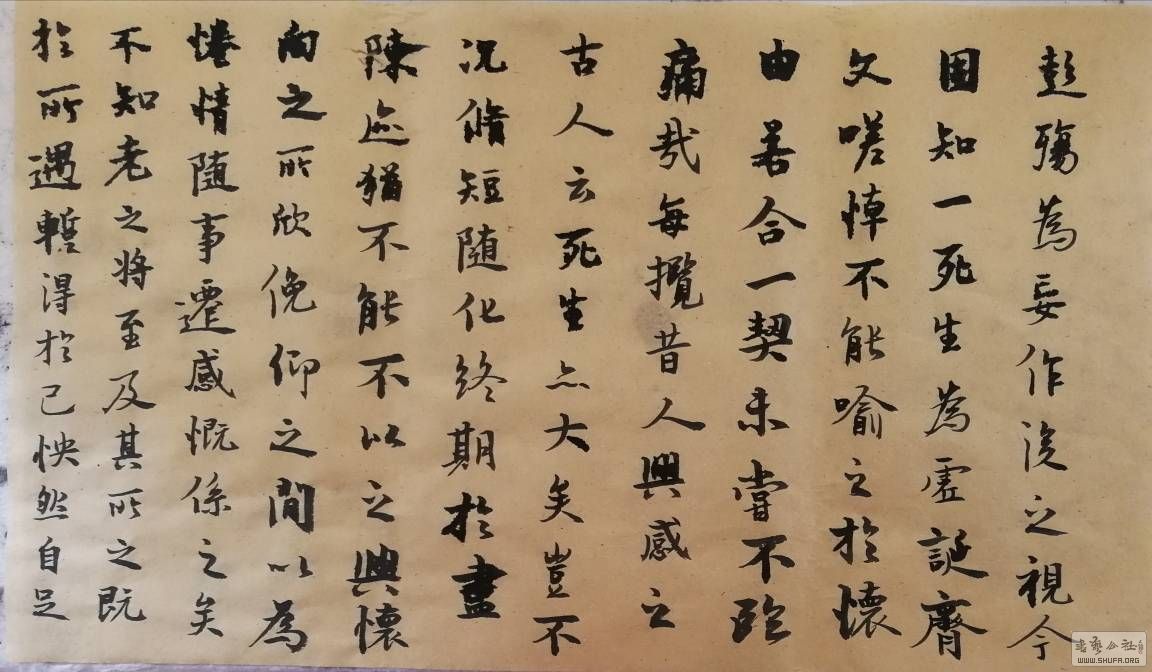 於所遇暫得於己怏然自足
不知老之將至及其所之既
惓情隨事遷感慨係之矣
向之所欣俛仰之間以為
陳迹猶不能不以之興懷
况脩短隨化終期於盡
古人云死生亦大矣豈不
痛哉每攬昔人興感之
由若合一契未嘗不臨
文嗟悼不能喻之於懷
固知一死生為虛誕齊
彭殤為妄作後之視今
WWW.SHUFA.ORG